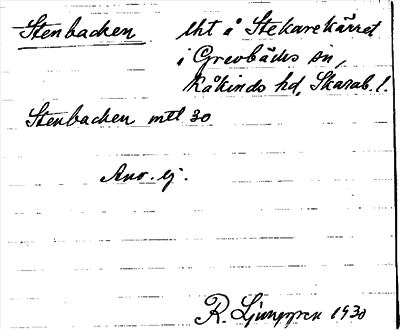 Stenbacken lht å Stekarekärret
i Grevbäcks sn,
Kåkinds hd, Skarab. l.
Stenbacken mtl 30
Anv. ej.
R. Ljunggren 1930